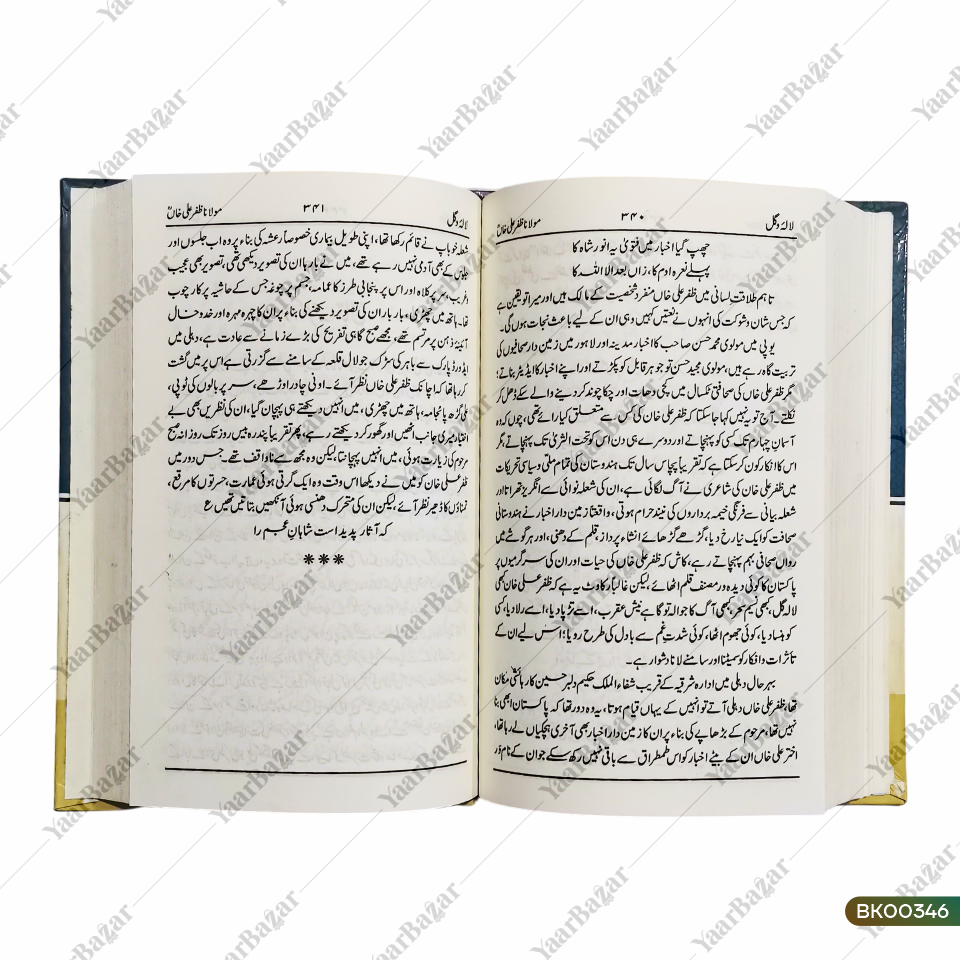 لالہ و گل ۳۴۰ مولانا ظفر علی خاںؒ
چھپ گیا اخبار میں فتویٰ یہ انور شاہ کا
پہلے نعرہ اوم کا، زاں بعد الا اللہ کا
تاہم طلاقتِ لسانی میں ظفر علی خاں منفرد شخصیت کے مالک ہیں اور میرا تو یقین ہے
کہ جس شان و شوکت کی انہوں نے نعتیں کہیں وہی ان کے لیے باعث نجات ہوں گی۔
یوپی میں مولوی محمد حسن صاحب کا اخبار مدینہ اور لاہور میں زمین دار صحافیوں کی
تربیت گاہ رہے ہیں، مولوی مجید حسن تو جوہر قابل کو پکڑتے اور اپنے اخبار کا ایڈیٹر بناتے؛
مگر ظفر علی خاں کی صحافتی ٹکسال میں کچی دھات اور چکا چوند کر دینے والے سکے ڈھل کر
نکلتے۔ آج تو یہ نہیں کہا جا سکتا کہ ظفر علی خان کی کس سے متعلق کیا رائے تھی، چوں کہ وہ
آسمانِ چہارم تک کسی کو پہنچاتے اور دوسرے ہی دن اس کو تحت الثریٰ تک پہنچاتے، مگر
اس کا انکار کون کر سکتا ہے کہ تقریباً پچاس سال تک ہندوستان کی تمام ملّی و سیاسی تحریکات
میں ظفر علی خان کی شاعری نے آگ لگائی ہے، ان کی شعلہ نوائی سے انگریز تھراتا اور
شعلہ بیانی سے فرنگی خیمہ برداروں کی نیند حرام ہوتی، واقعتاً زمین دار اخبار نے ہندوستانی
صحافت کو ایک نیا رخ دیا، گڑھے گڑھائے انشاء پرداز، قلم کے دھنی، اور ہر گوشے میں
رواں صحافی بہم پہنچاتے رہے، کاش کہ ظفر علی خاں کی حیات اور ان کی سرگرمیوں پر
پاکستان کا کوئی دیدہ ور مصنف قلم اٹھائے، لیکن غالباً رکاوٹ یہ ہے کہ ظفر علی خان بھی
لالہ گل، کبھی نسیم سحر، کبھی آگ کا جوالہ تو گاہے نیش عقرب، اسے تڑپا دیا، اسے رلا دیا، کسی
کو ہنسا دیا، کوئی جھوم اٹھا، کوئی شدتِ غم سے بادل کی طرح رویا؛ اس لیے ان کے
تأثرات و افکار کو سمیٹنا اور سامنے لانا دشوار ہے۔
بہر حال دہلی میں ادارہ شرقیہ کے قریب شفاء الملک حکیم دلبر حسین کا رہائشی مکان
تھا، ظفر علی خاں دہلی آتے تو انہیں کے یہاں قیام ہوتا، یہ وہ دور تھا کہ پاکستان ابھی بنا
نہیں تھا، مرحوم کے بڑھاپے کی بناء پر ان کا زمین دار اخبار بھی آخری ہچکیاں لے رہا تھا،
اختر علی خاں ان کے بیٹے اخبار کو اس طمطراق سے باقی نہیں رکھ سکے جو ان کے نام وَر
لالہ و گل ۳۴۱ مولانا ظفر علی خاںؒ
شعلہ خو باپ نے قائم رکھا تھا، اپنی طویل بیماری خصوصاً رعشہ کی بناء پر وہ اب جلسوں اور
جلوس کے بھی آدمی نہیں رہے تھے، میں نے بارہا ان کی تصویر دیکھی تھی، تصویر بھی عجیب
دلفریب، سر پر کلاہ اور اس پر پنجابی طرز کا عمامہ، جسم پر چوغہ جس کے حاشیہ پر کار چوب
تھا۔ ہاتھ میں چھڑی، بار بار ان کی تصویر دیکھنے کی بناء پر ان کا چہرہ مہرہ اور خد و خال
آئینۂ ذہن پر مرتسم تھے، مجھے صبح گاہی تفریح کی بڑے زمانے سے عادت ہے، دہلی میں
ایڈورڈ پارک سے باہر کی سڑک جو لال قلعہ کے سامنے سے گزرتی ہے اس پر میں گشت
کر رہا تھا کہ اچانک ظفر علی خاں نظر آئے۔ اونی چادر اوڑھے، سر پر بالوں کی ٹوپی،
علی گڑھ پائجامہ، ہاتھ میں چھڑی، میں انہیں دیکھتے ہی پہچان گیا، ان کی نظریں بھی بے
اختیار میری جانب اٹھیں اور گھور کر دیکھتے رہے، پھر تقریباً پندرہ بیس روز تک روزانہ صبح
مرحوم کی زیارت ہوئی، میں انہیں پہچانتا، لیکن وہ مجھ سے ناواقف تھے۔ جس دور میں
ظفر علی خان کو میں نے دیکھا اس وقت وہ ایک گرتی ہوئی عمارت، حسرتوں کا مرقع،
تمناؤں کا ڈھیر نظر آئے، لیکن ان کی متحرک دھنسی ہوئی آنکھیں بتاتیں تھیں ع
کہ آثار پدید است شاہانِ عجم را
***
BK00346
YaarBazar